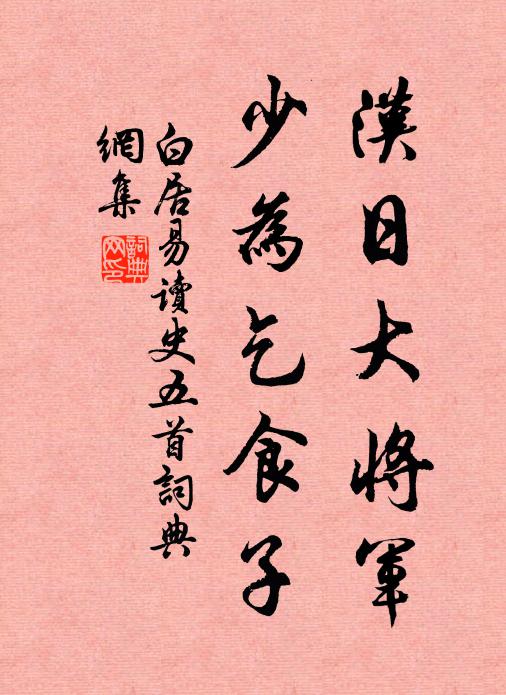 漢日大將軍
少為乞食子
白居易讀史五首詞典
網集
詞典
网印